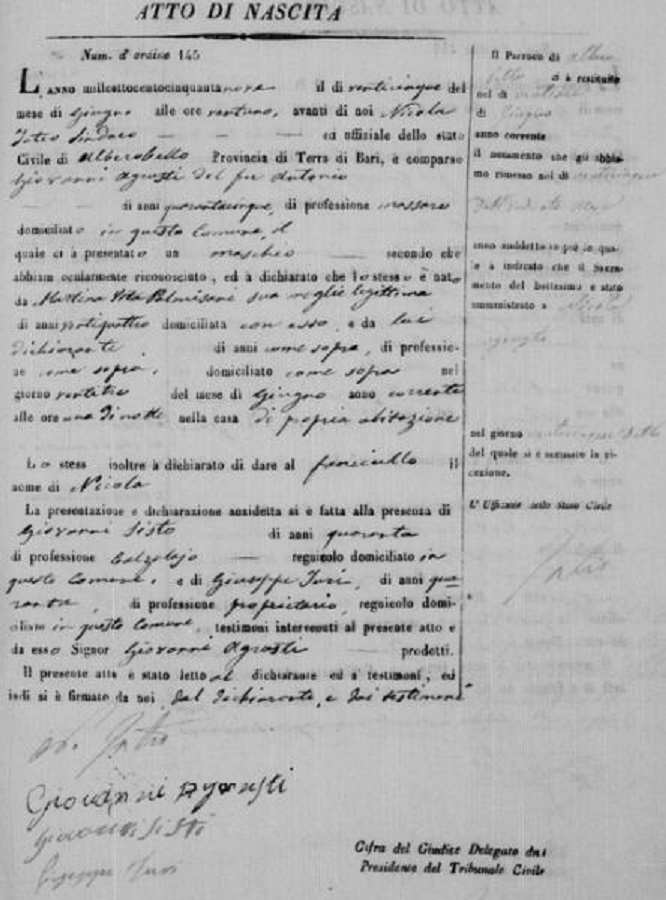 ATTO DI NASCITA
Num. d'ordine 145
L'ANNO milleottocentocinquantanove il di venticinque del
mese di Giugno alle ore ventuno, avanti di noi Nicola
Sindaco ed uffiziale dello stato
Civile di Alberobello Provincia di Terra di Bari, è comparso
Giovanni Agrusti del fu Antonio
di anni quarantacinque, di professione massaro
domiciliato in questo Comune, il
quale ci à presentato un maschio secondo che
abbiam ocularmente riconosciuto, ed à dichiarato che lo stesso è nato
da Martina Vita Palmisani sua moglie legittima
di anni ventiquattro domiciliata con esso, e da lui
dichiarante di anni come sopra, di professio-
ne come sopra, domiciliato come sopra nel
giorno ventitre del mese di Giugno anno corrente
alle ore una di notte nella casa di propria abitazione
Lo stess inoltre à dichiarato di dare al fanciullo il
nome di Nicola
La presentazione e dichiarazione anzidetta si è fatta alla presenza di
Giovanni Sisto di anni quaranta
di professione Calzolajo regnicolo domiciliato in
questo Comune, e di Giuseppe Turi, di anni qua=
ranta, di professione proprietario, regnicolo domi-
ciliato in questo Comune, testimoni intervenuti al presente atto e
da esso Signor Giovanni Agrusti prodotti.
Il presente atto è stato letto al dichiarante ed a' testimoni, ed
indi si è firmato da noi, dal dichiarante, e dai testimoni
Giovanni Agrusti
Giovanni Sisti
Giuseppe Turi
Il Parroco di Albero
bello ci à restituito
nel di
di Giugno
anno corrente
il notamento che gli abbia-
mo rimesso nel di venticinque
anno suddetto in piè in qua-
le à indicato che il Sacra-
mento del battesimo è stato
amministrato a Nicola
Agrusti
nel giorno venticinque detto
del quale si è accusato la ri-
cezione.
L'Uffiziale dello Stato Civile
Cifra del Giudice Delegato dal
Presidente del Tribunale Civile